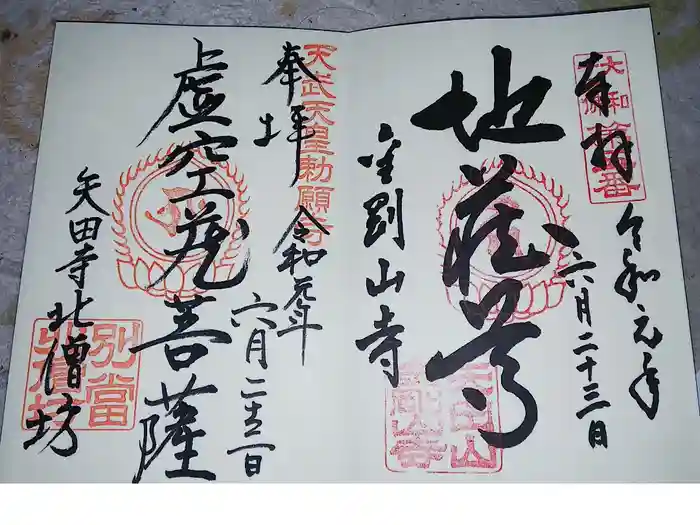 奉拝
令和元年
六月二十三日
地蔵尊
金剛山寺
天武天皇勅願寺
奉拝
令和元年
六月二十三日
虚空蔵菩薩
矢田寺北僧坊
別當
北僧坊